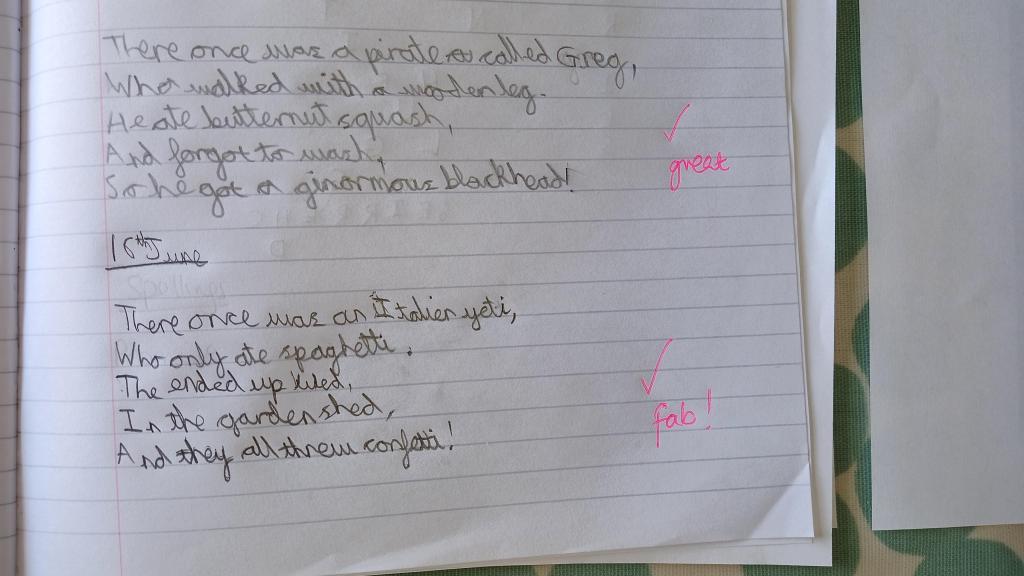 There once was a pirate called Greg,
Who walked with a wooden leg.
He ate butternut squash,
And forgot to wash,
So he got a ginormous blackhead!
great
16th June
Spellings
There once was an Italien yeti,
Who only ate spaghetti.
The ended up killed,
In the garden shed,
And they all threw confetti!
fab!